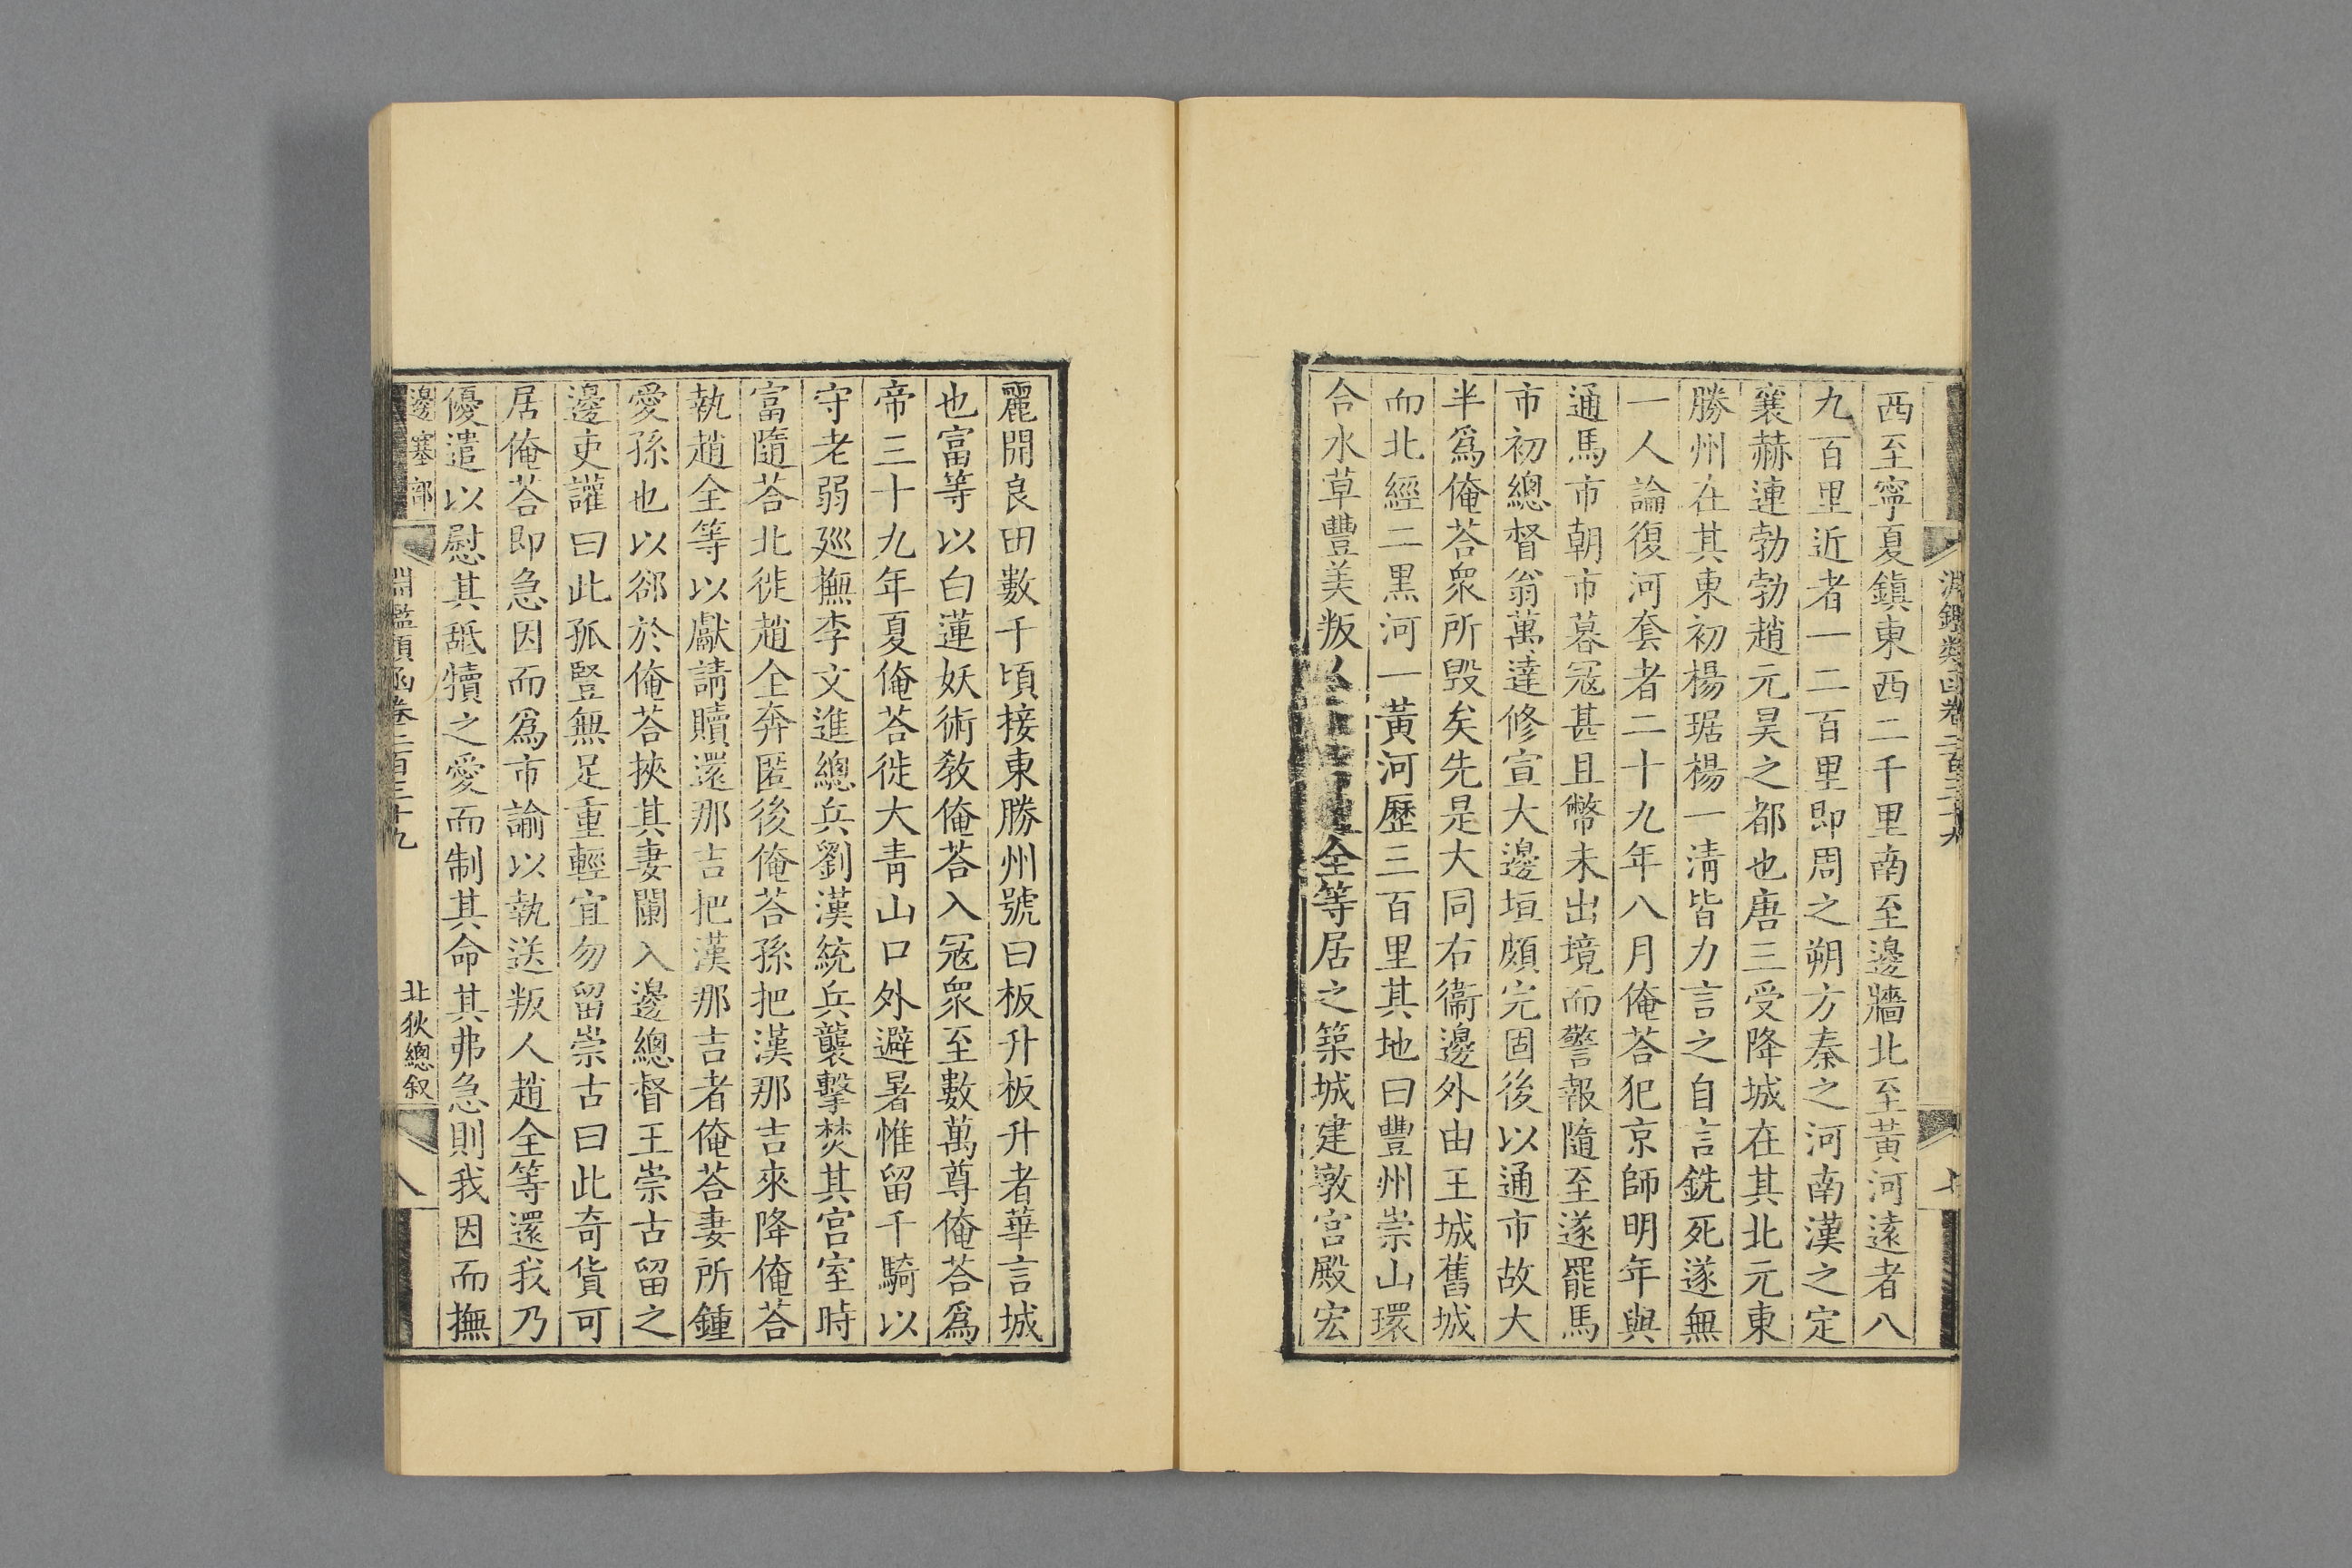 淵鑑類函卷二百三十九
七
西至寧夏鎮東西二千里南至邊牆北至黃河遠者八
九百里近者一二百里即周之朔方秦之河南漢之定
襄赫連勃勃趙元昊之都也唐三受降城在其北元東
勝州在其東初楊琚楊一清皆力言之自言銑死遂無
一人論復河套者二十九年八月俺荅犯京師明年與
通馬市朝市暮寇甚且幣未出境而警報隨至遂罷馬
市初總督翁萬達修宣大邊垣頗完固後以通市故大
半爲俺荅衆所毁矣先是大同右衞邊外由王城舊城
而北經二黑河一黃河歷三百里其地曰豐州崇山環
合水草豐美叛全等居之築城建敦宫殿宏
麗開良田數千頃接東勝州號曰板升板升者華言城
也富等以白蓮妖術敎俺荅入寇衆至數萬尊俺荅爲
帝三十九年夏俺荅徙大靑山口外避暑惟留千騎以
守老弱廵撫李文進總兵劉漢統兵襲擊焚其宫室時
富隨荅北徙趙全奔匿後俺荅孫把漢那吉來降俺荅
執趙全等以獻請贖還那吉把漢那吉者俺荅妻所鍾
愛孫也以郤於俺荅挾其妻闌入邊總督王崇古留之
邊吏讙曰此孤豎無足重輕宜勿留崇古曰此奇貨可
居俺荅即急因而爲市諭以執送叛人趙全等還我乃
優遣以慰其舐犢之愛而制其命其弗急則我因而撫
邊塞部
淵鑑類函卷二百三十九
北狄總叙
八